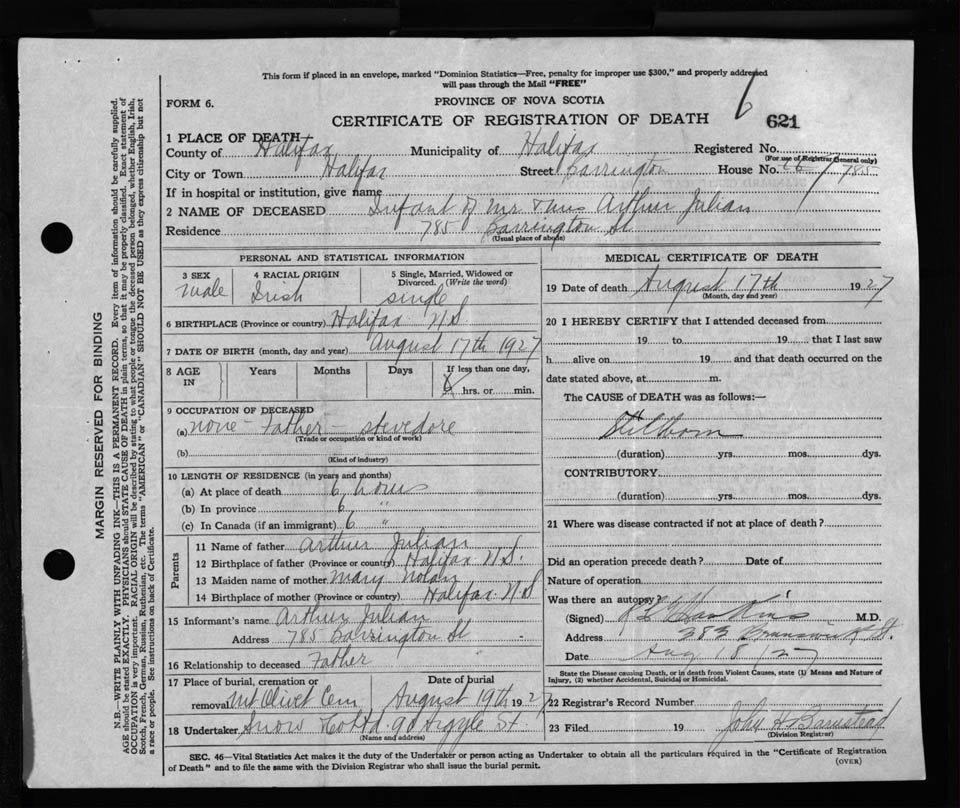 This form if placed in an envelope, marked "Dominion Statistics—Free, penalty for improper use $300," and properly addressed
will pass through the Mail "FREE"
FORM 6.
PROVINCE OF NOVA SCOTIA
CERTIFICATE OF REGISTRATION OF DEATH
6
621
1 PLACE OF DEATH
County of Halifax Municipality of Halifax Registered No.
(For use of Registrar General only)
City or Town Halifax Street Barrington House No. 785
If in hospital or institution, give name
2 NAME OF DECEASED Infant of Mr & Mrs Arthur Julian
Residence 785 Barrington St
(Usual place of abode)
PERSONAL AND STATISTICAL INFORMATION
3 SEX male
4 RACIAL ORIGIN Irish
5 Single, Married, Widowed or Divorced. (Write the word) single
6 BIRTHPLACE (Province or country) Halifax N.S.
7 DATE OF BIRTH (month, day and year) August 17th 1927
8 AGE IN Years Months Days If less than one day, 6 hrs. or min.
9 OCCUPATION OF DECEASED
(a) none - Father - stevedore
(Trade or occupation or kind of work)
(b)
(Kind of industry)
10 LENGTH OF RESIDENCE (in years and months)
(a) At place of death 6 hours
(b) In province 6 "
(c) In Canada (if an immigrant) 6 "
Parents
11 Name of father Arthur Julian
12 Birthplace of father (Province or country) Halifax N.S.
13 Maiden name of mother Mary Nolan
14 Birthplace of mother (Province or country) Halifax N.S
15 Informant's name Arthur Julian
Address 785 Barrington St
16 Relationship to deceased Father
17 Place of burial, cremation or removal Mt Olivet Cem
Date of burial August 19th 1927
18 Undertaker Snow & Co Ltd 90 Argyle St
(Name and address)
MEDICAL CERTIFICATE OF DEATH
19 Date of death August 17th 1927
(Month, day and year)
20 I HEREBY CERTIFY that I attended deceased from
19 to 19 that I last saw
h alive on 19 and that death occurred on the
date stated above, at m.
The CAUSE of DEATH was as follows:—
Stillborn
(duration) yrs. mos. dys.
CONTRIBUTORY.
(duration) yrs. mos. dys.
21 Where was disease contracted if not at place of death?
Did an operation precede death? Date of
Nature of operation
Was there an autopsy?
(Signed) M.D.
Address 383 Brunswick St.
Date Aug 18/27
State the Disease causing Death, or in death from Violent Causes, state (1) Means and Nature of
Injury, (2) whether Accidental, Suicidal or Homicidal.
22 Registrar's Record Number
23 Filed 19 John H Barnstead
(Division Registrar)
SEC. 46—Vital Statistics Act makes it the duty of the Undertaker or person acting as Undertaker to obtain all the particulars required in the "Certificate of Registration
of Death" and to file the same with the Division Registrar who shall issue the burial permit.
(OVER)
MARGIN RESERVED FOR BINDING
N.B.—WRITE PLAINLY WITH UNFADING INK—THIS IS A PERMANENT RECORD. Every item of information should be carefully supplied.
AGE should be stated EXACTLY. PHYSICIANS should STATE CAUSE OF DEATH in plain terms, so that it may be properly classified. Exact statement of
OCCUPATION is very important. RACIAL ORIGIN will be described by stating to what people or tongue the deceased person belonged, whether English, Irish,
Scotch, French, German, Russian, Ruthenian, etc. The terms "AMERICAN" or "CANADIAN" SHOULD NOT BE USED as they express citizenship but not
a race or people. See instructions on back of Certificate.